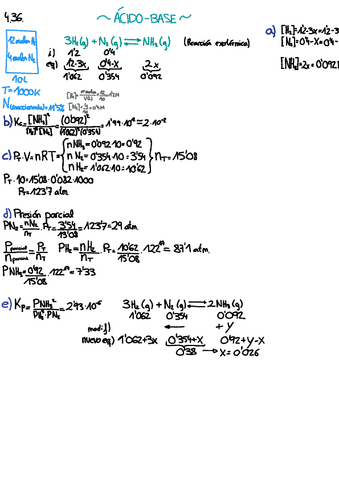 4.36.
~ÁCIDO-BASE~
12 moles H₂
4 moles N₂
10L
T=1000K
N(reaccionado)=11'5%
3H₂(g) + N₂(g) ⇌ NH₃(g) (Reacción exotérmica)
i) 1'2 0'4
eq) 1'2-3x 0'4-x 2x
1'062 0'354 0'092
a) [H₂]=1'2-3x=1'2-3
[N₂]=0'4-x=0'4-
[NH₃]=2x=0'092
b) Kc=[NH₃]²/[H₂]³[N₂]=(0'092)²/(1'062)³(0'354)=1'99·10⁻²≈2·10⁻²
c) P_T·V=nRT= n NH₃=0'092·10=0'92
n N₂=0'354·10=3'54
n H₂=1'062·10=10'62
n_T=15'08
P_T·10=15'08·0'082·1000
P_T=123'7 atm
d) Presión parcial
PN₂=nN₂/n_T·P_T=3'54/15'08·123'7=29 atm
P parcial/n parcial=P_T/n_T PH₂=nH₂/n_T·P_T=10'62/15'08·122'=87'1 atm
PNH₃=0'92/15'08·122'=7'33
e) Kp=PNH₃²/PH₂³·PN₂=2'93·10⁻⁶
3H₂(g) + N₂(g) ⇌ 2NH₃(g)
1'062 0'354 0'092
← +y
nuevo eq) 1'062+3x 0'354+x 0'92+y-x
0'38 → x=0'026